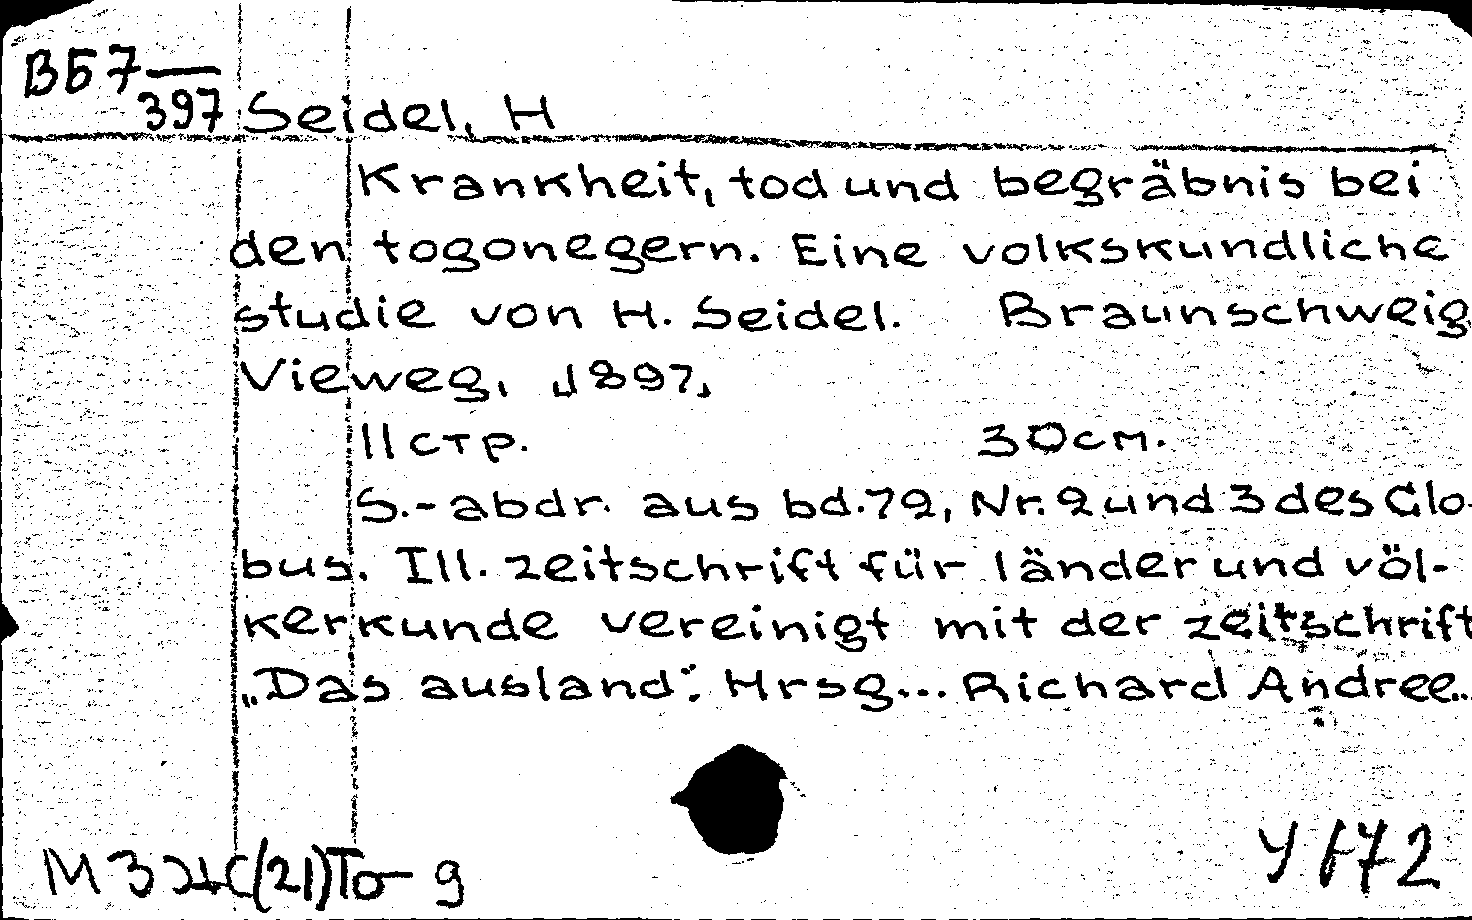 ВБ7
397 Seidel, H
Krankheit, tod und begräbnis bei
den togonegern. Eine volkskundliche
studie von H. Seidel. Braunschweig,
Vieweg, 1897,
11 стр. 30 см.
S.-abdr. aus bd. 72, Nr. 2 und 3 des Glo-
bus. Ill. zeitschrift für länder und völ-
kerkunde vereinigt mit der zeitschrift
„Das ausland". Hrsg... Richard Andree...